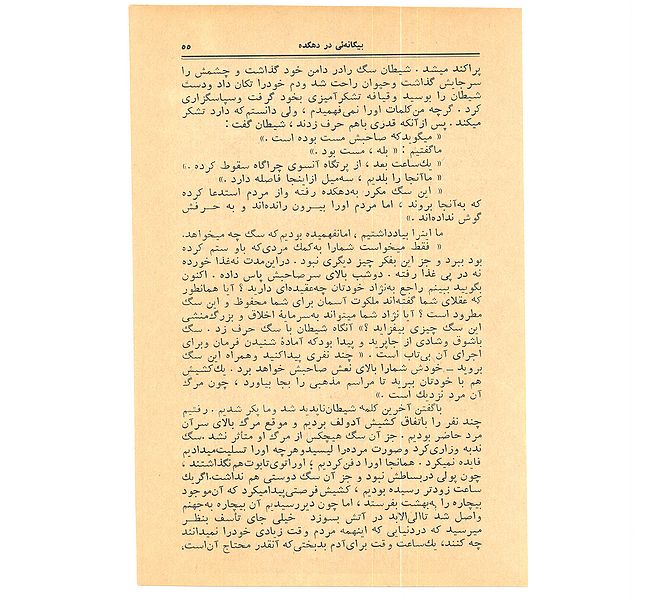 بیگانه‌ئی در دهکده
۵۵
پراکند میشد . شیطان سگ رادر دامن خود گذاشت و چشمش را
سرجایش گذاشت وحیوان راحت شد ودم خودرا تکان داد ودست
شیطان را بوسید وقیافه تشکرآمیزی بخود گرفت وسپاسگزاری
کرد . گرچه من‌کلمات اورا نمی‌فهمیدم ، ولی دانستم‌که دارد تشکر
میکند . پس ازآنکه قدری باهم حرف زدند ، شیطان گفت :
« میگویدکه صاحبش مست بوده است . »
ماگفتیم : « بله ، مست بود . »
« یك‌ساعت بعد ، از پرتگاه آنسوی چراگاه سقوط کرده . »
« ماآنجا را بلدیم ، سه‌میل ازاینجا فاصله دارد . »
« این سگ مکرر به‌دهکده رفته واز مردم استدعا کرده
که به‌آنجا بروند ، اما مردم اورا بیرون رانده‌اند و به حرفش
گوش نداده‌اند . »
ما اینرا بیادداشتیم ، امانفهمیده بودیم‌که سگ چه میخواهد.
« فقط میخواست شمارا به‌کمك مردی‌که باو ستم کرده
بود ببرد و جز این بفکر چیز دیگری نبود . دراین‌مدت نه‌غذا خورده
نه در پی غذا رفته . دوشب بالای سرصاحبش پاس داده . اکنون
بگویید ببینم راجع به‌نژاد خودتان چه‌عقیده‌ای دارید ؟ آیا همانطور
که عقلای شما گفته‌اند ملکوت آسمان برای شما محفوظ و این سگ
مطرود است ؟ آیا نژاد شما میتواند به‌سرمایهٔ اخلاق و بزرگ‌منشی
این سگ چیزی بیفزاید ؟» آنگاه شیطان با سگ حرف زد . سگ
باشوق وشادی از جاپرید و پیدا بودکه آمادهٔ شنیدن فرمان وبرای
اجرای آن بی‌تاب است . « چند نفری پیداکنید وهمراه این سگ
بروید ــ خودش شمارا بالای نعش صاحبش خواهد برد . یك‌کشیش
هم با خودتان ببرید تا مراسم مذهبی را بجا بیاورد ، چون مرگ
آن مرد نزدیك است .»
باگفتن آخرین کلمه شیطان‌ناپدید شد وما پکر شدیم . رفتیم
چند نفر را باتفاق کشیش آدولف بردیم و موقع مرگ بالای سرآن
مرد حاضر بودیم . جز آن سگ هیچکس از مرگ او متأثر نشد .سگ
ندبه وزاری‌کرد وصورت مرده‌را لیسیدوهرچه اورا تسلیت‌میدادیم
فایده نمیکرد . همانجا اورا دفن‌کردیم ؛ اوراتوی‌تابوت‌هم‌نگذاشتند ،
چون پولی دربساطش نبود و جز آن سگ دوستی هم نداشت.اگریك
ساعت زودتر رسیده بودیم ، کشیش فرصتی‌پیدامیکرد که آن‌موجود
بیچاره را به‌بهشت بفرستد ، اما چون دیررسیدیم آن بیچاره به‌جهنم
واصل شد تاالی‌الابد در آتش بسوزد خیلی جای تأسف بنظر
میرسید که دردنیایی که اینهمه مردم وقت زیادی خودرا نمیدانند
چه کنند، یك‌ساعت وقت برای‌آدم بدبختی‌که آنقدر محتاج آن‌است.